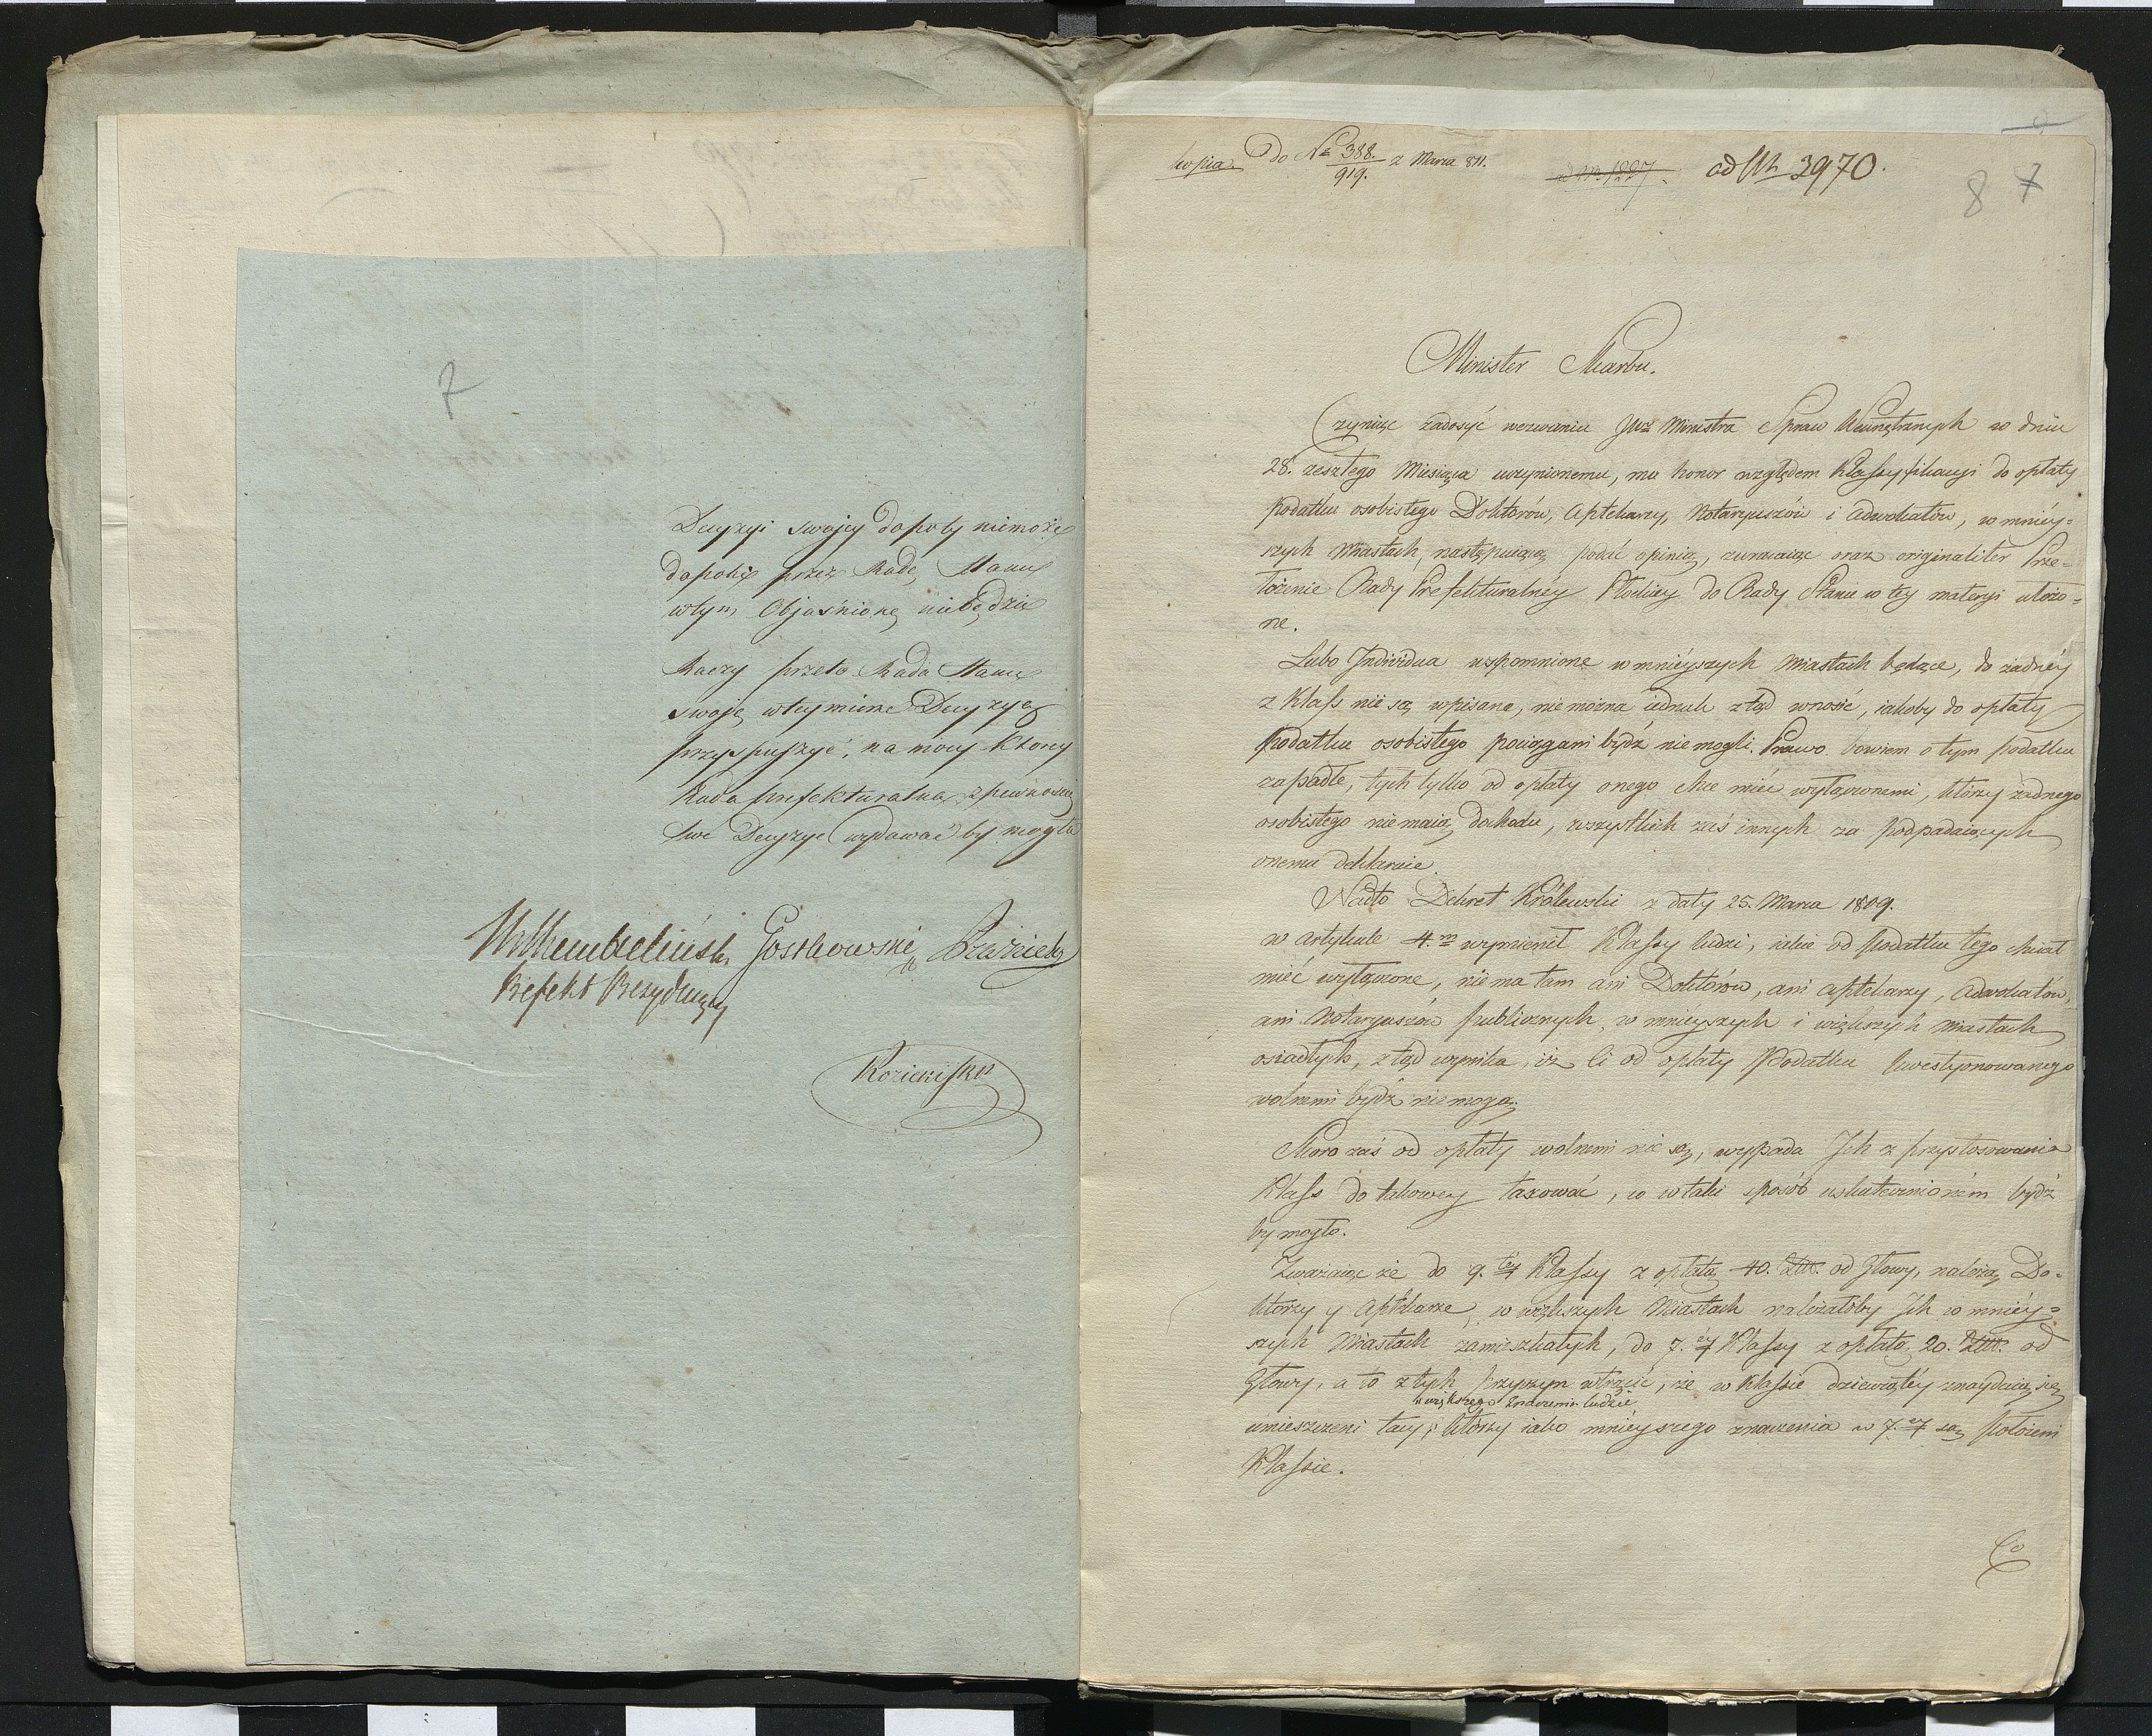 7
Decyzyi swojey dopoty niemoże
dopokiż przez Radę Stanu
wtym Objaśnioną niebędzie
Raczy przeto Rada Stanu
swoję wtey mierze Decyzyę
przyspieszyć, na mocy którey
Rada prefekturalna z pewnością
swe Decyzye wydawać by mogła
Gostkowski
Prefekt Prezydujący
Kozicki
kopia Do № 388./919. z Marca 811.
ad Nr. 1227. ad Nr 3970.
8 7
Minister Skarbu.
Czyniąc zadosyć wezwaniu JWo Ministra Spraw Wewnętrznych w dniu
28. zeszłego Miesiąca uczynionemu, ma honor względem Klassyfikacyi do opłaty
podatku osobistego Doktorów, Aptekarzy, Notaryuszów i Adwokatów, w mniéy=
szych Miastach, następuiącą podać opinią, zwracaiąc oraz originaliter Prze=
łożenie Rady Prefekturalnéy Płockiey do Rady Stanu w tey materyi ułożo=
ne.
Lubo Individua wspomnione w mniéyszych Miastach będące, do żadnéy
z Klass nie są wpisane, nie można iednak ztąd wnosić, iakoby do opłaty
podatku osobistego pociągani bydź nie mogli. Prawo bowiem o tym podatku
zapadłe, tych tylko od opłaty onego chce mieć wyłączonemi, którzy żadnego
osobistego nie maią dochodu, wszystkich zaś innych za podpadaiących
onemu deklaruie.
Nadto Dekret Królewski z daty 25. Marca 1809.
w artykule 4.m wymienił Klassy ludzi, iakie od podatku tego chciał
mieć wyłączone, nie ma tam ani Doktorów, ani aptekarzy, Adwokatów,
ani Notaryuszów publicznych, w mnieyszych i większych Miastach
osiadłych, ztąd wynika, iż Ci od opłaty Podatku kwestyonowanego
wolnemi bydź nie mogą.
Skoro zaś od opłaty wolnemi nie są, wypada Ich z przystosowania
Klass do takowey taxować, co w taki sposób uskutecznionem bydź
by mogło.
Zważaiąc że do 9.téy Klassy z opłatą 40. Złłt. od Głowy, należą Do=
ktorzy y Aptekarze, w większych Miastach należałoby Ich w mniéy=
szych Miastach zamieszkałych, do 7.éy Klassy z opłatą 20. Złłt. od
Głowy, a to z tych przyczyn wtrącić, że w Klassie dziewiątéy znayduią się
większego znaczenia ludzie
umieszczeni tacy, którzy iako mnieyszego znaczenia w 7.éy są położeni
Klassie.
Co